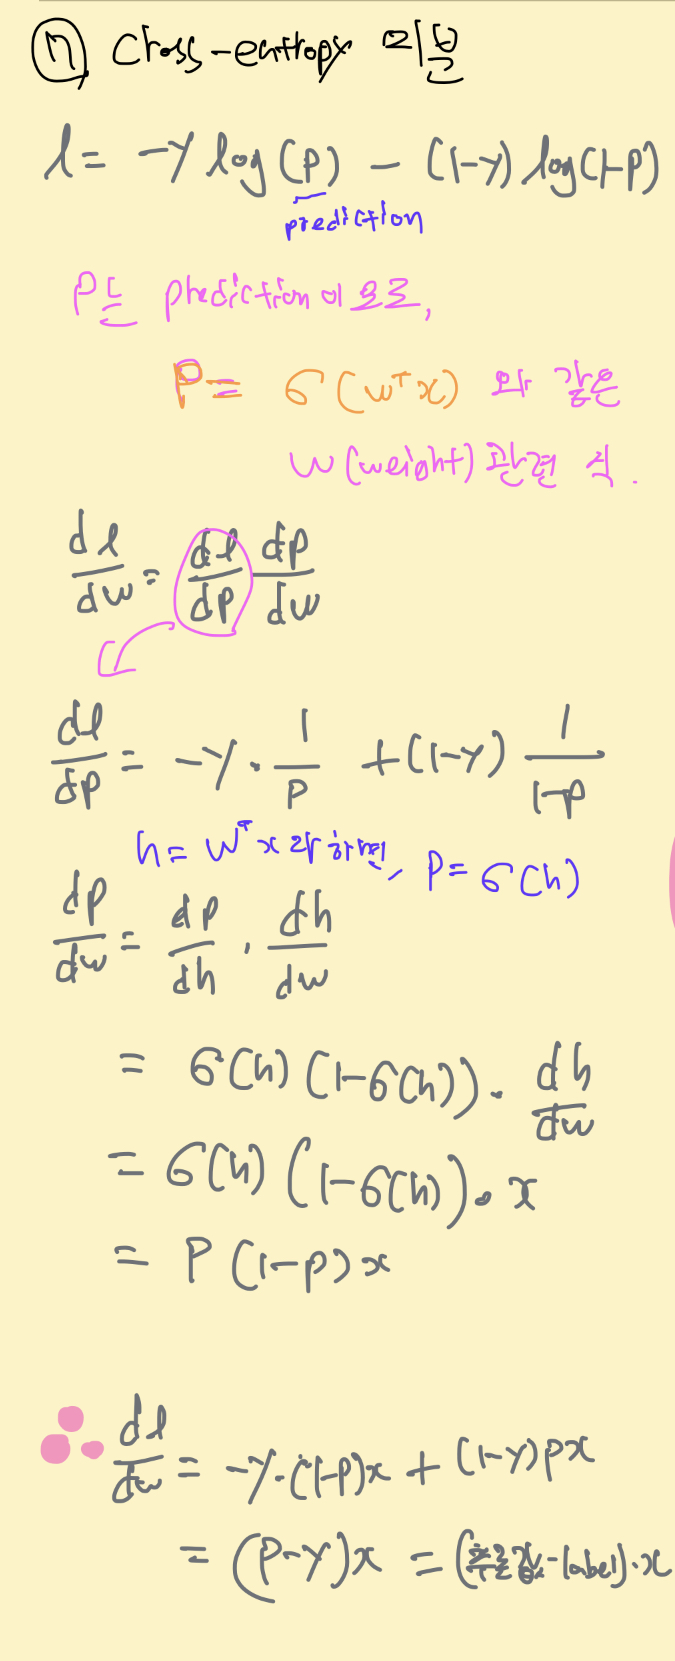 ⓝ Cross-entropy 미분
l = -y log(p) - (1-y) log(1-p)
prediction
p는 prediction이므로,
p = σ(wᵀx) 와 같은
w(weight) 관련 식.
dl/dw = dl/dp dp/dw
dl/dp = -y · 1/p + (1-y) 1/(1-p)
h = wᵀx라 하면, p = σ(h)
dp/dw = dp/dh · dh/dw
= σ(h) (1-σ(h)) · dh/dw
= σ(h) (1-σ(h)) · x
= p(1-p)x
dl/dw = -y·(1-p)x + (1-y)px
= (p-y)x = (추론값-label)·x